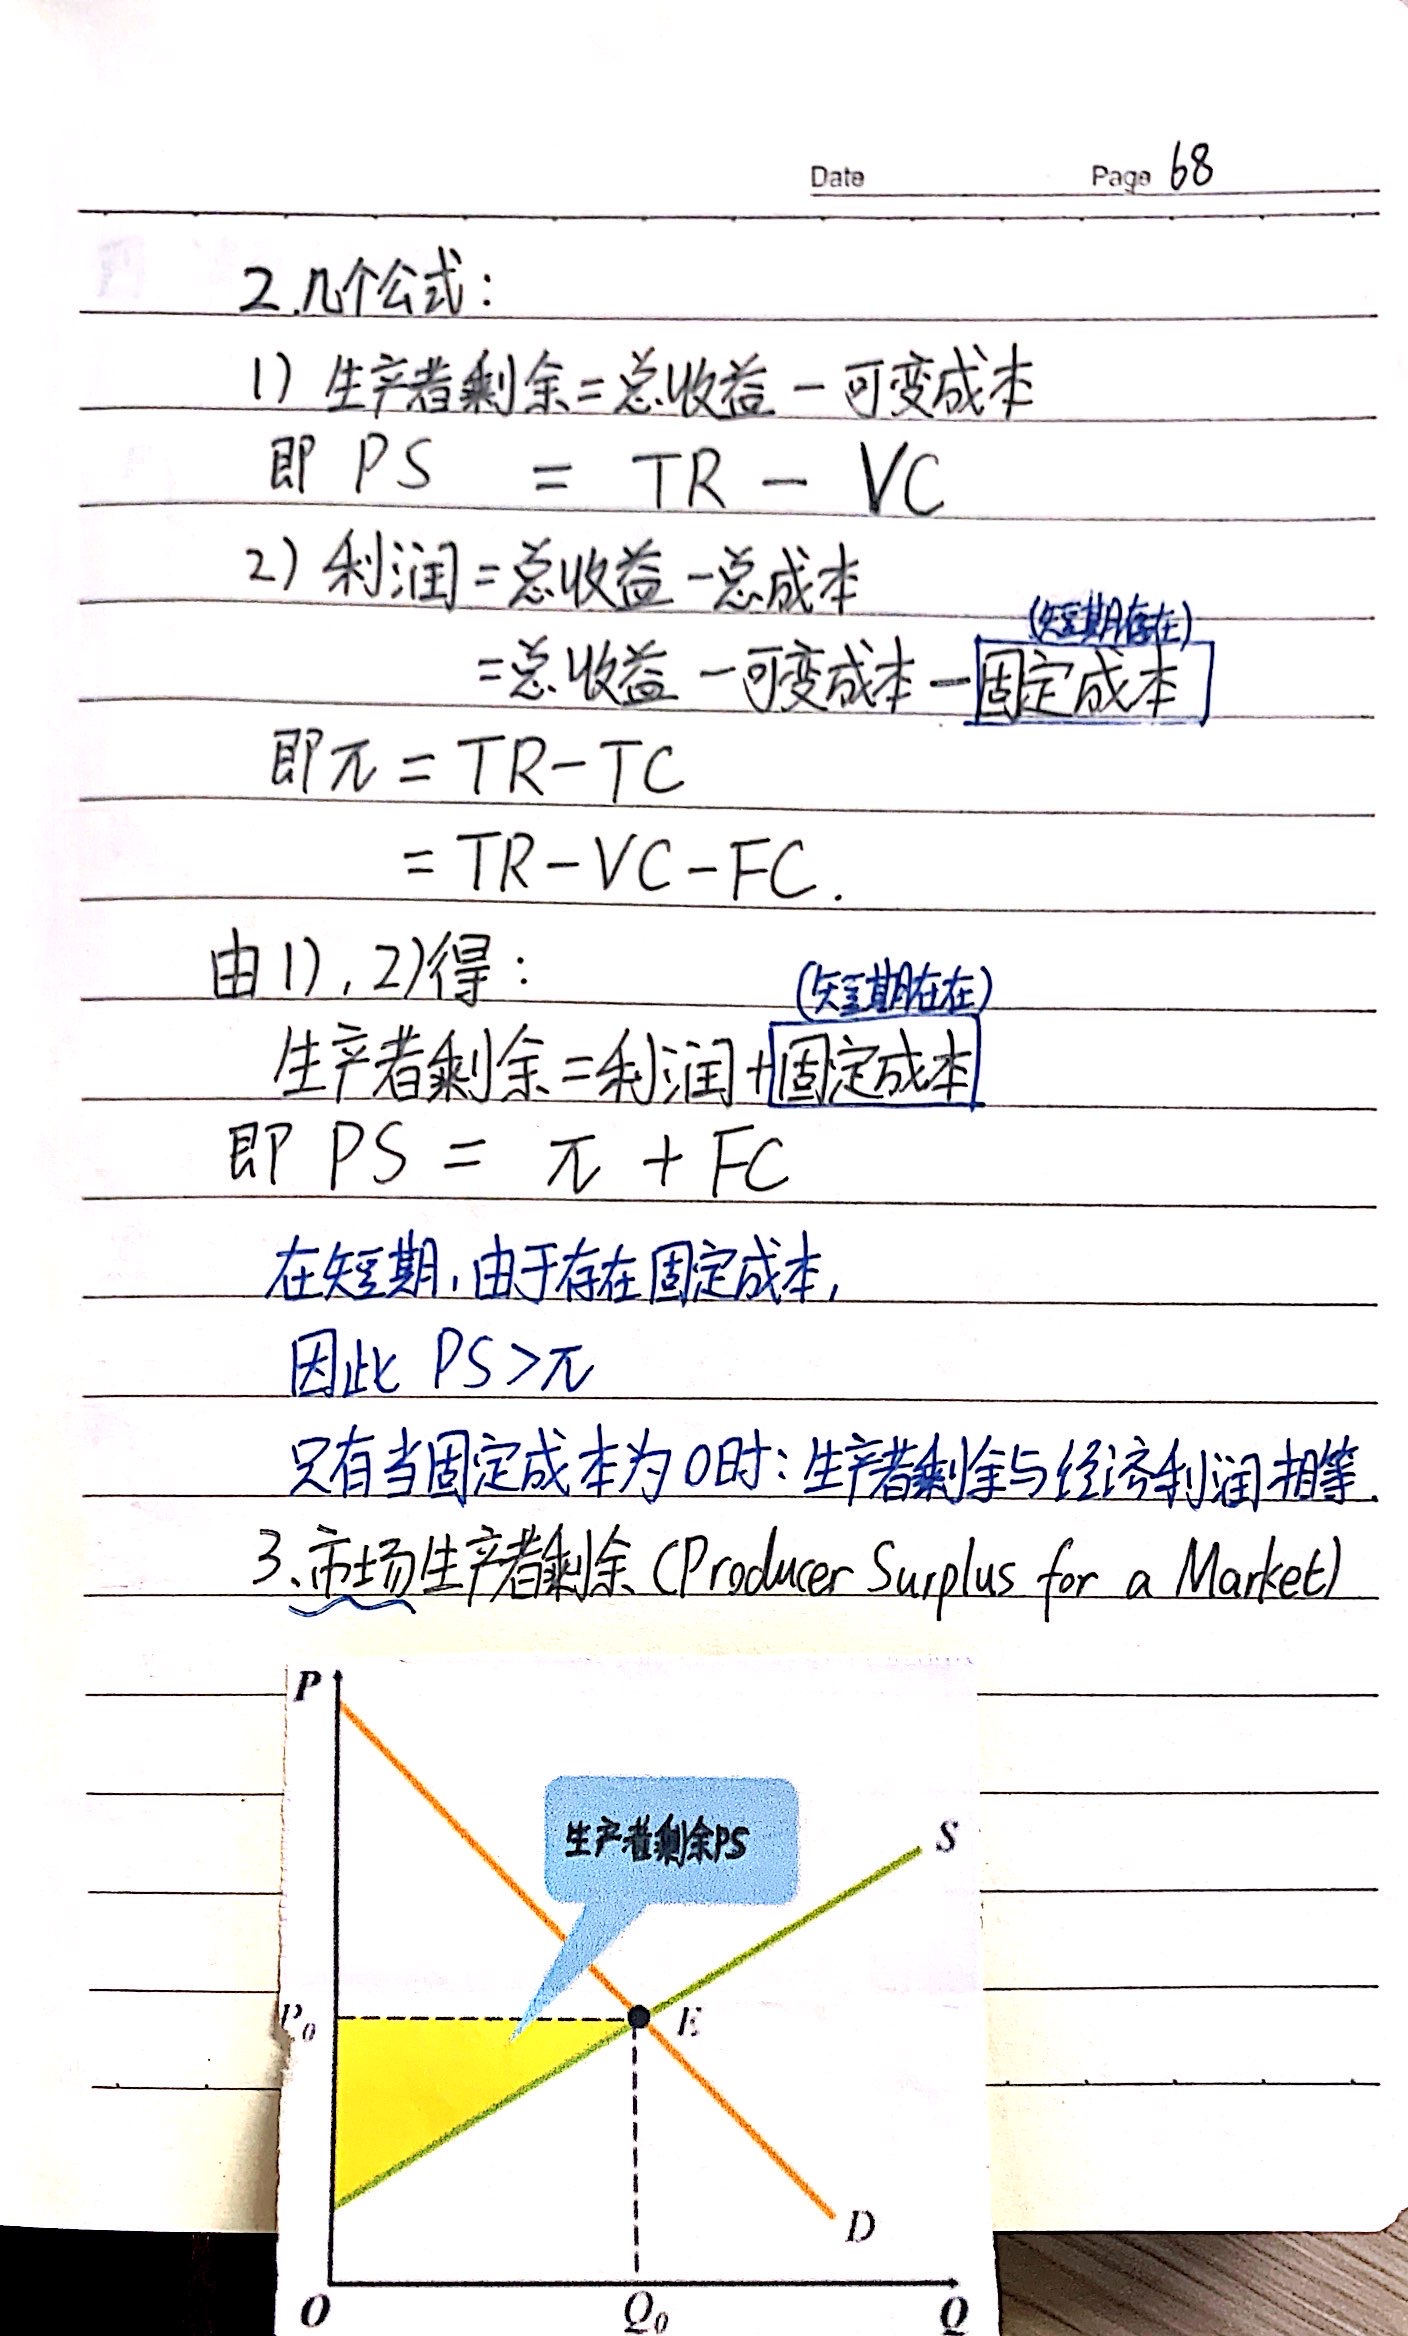 Date Page 68
2.几个公式：
1) 生产者剩余=总收益-可变成本
即 PS = TR - VC
2) 利润=总收益-总成本
(短期存在)
=总收益-可变成本-固定成本
即π=TR-TC
=TR-VC-FC.
由1), 2)得：
(短期存在)
生产者剩余=利润+固定成本
即 PS = π + FC
在短期,由于存在固定成本,
因此 PS>π
只有当固定成本为0时:生产者剩余与经济利润相等.
3、市场生产者剩余 (Producer Surplus for a Market)
P
生产者剩余PS
S
P₀
E
D
O
Q₀
Q